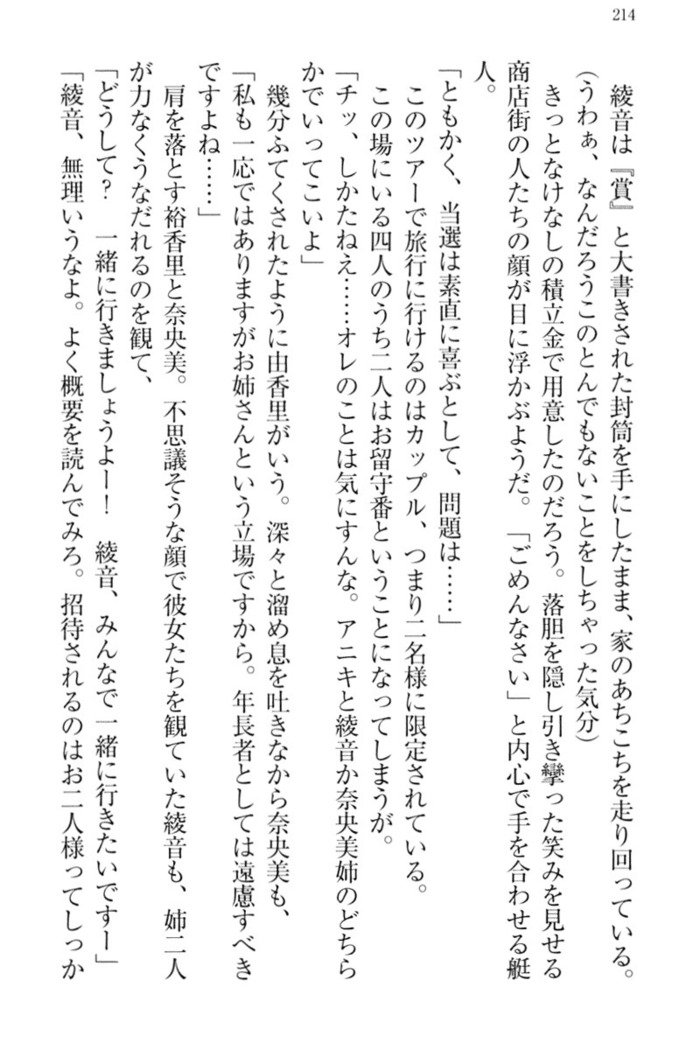 214
綾音は『賞』と大書きされた封筒を手にしたまま、家のあちこちを走り回っている。
(うわぁ、なんだろうこのとんでもないことをしちゃった気分)
きっとなけなしの積立金で用意したのだろう。落胆を隠し引き攣った笑みを見せる
商店街の人たちの顔が目に浮かぶようだ。「ごめんなさい」と内心で手を合わせる艇
人。
「ともかく、当選は素直に喜ぶとして、問題は……」
このツアーで旅行に行けるのはカップル、つまり二名様に限定されている。
この場にいる四人のうち二人はお留守番ということになってしまうが。
「チッ、しかたねえ……オレのことは気にすんな。アニキと綾音か奈央美姉のどちら
かでいってこいよ」
幾分ふてくされたように由香里がいう。深々と溜め息を吐きなから奈央美も、
「私も一応ではありますがお姉さんという立場ですから。年長者としては遠慮すべき
ですよね……」
肩を落とす裕香里と奈央美。不思議そうな顔で彼女たちを観ていた綾音も、姉二人
が力なくうなだれるのを観て、
「どうして？　一緒に行きましょうよー！　綾音、みんなで一緒に行きたいですー」
「綾音、無理いうなよ。よく概要を読んでみろ。招待されるのはお二人様ってしっか